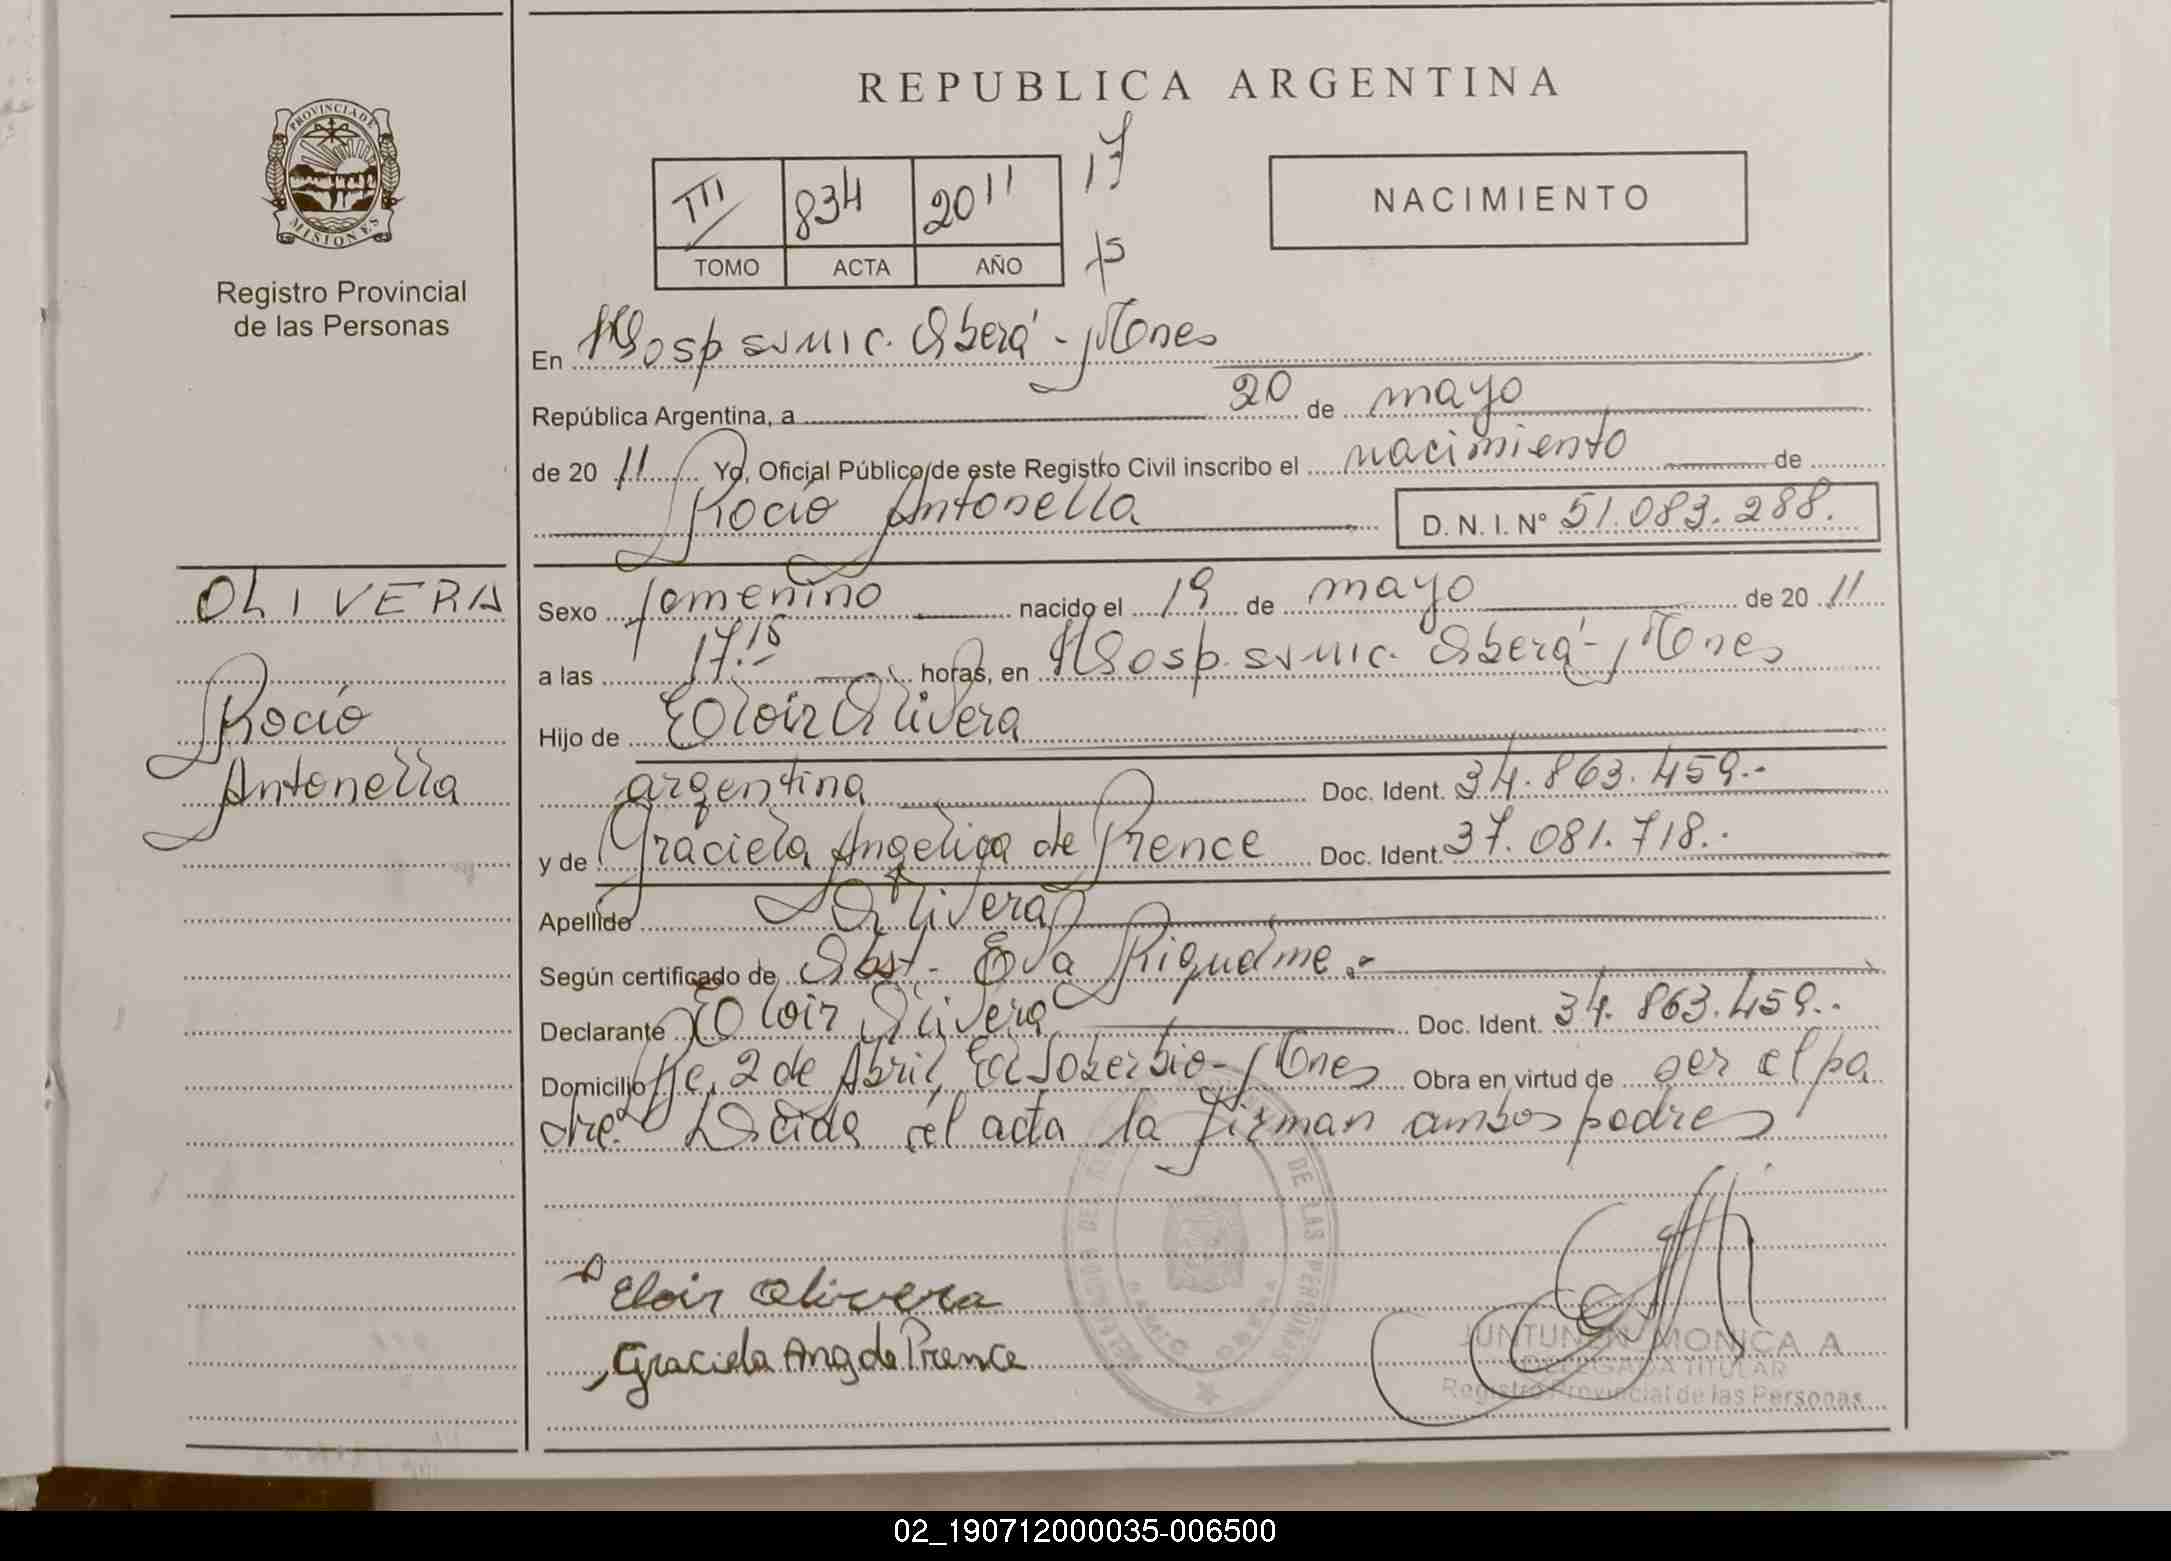 REPUBLICA ARGENTINA
PROVINCIA DE
MISIONES
Registro Provincial
de las Personas
TIII 834 2011
TOMO ACTA AÑO
17
NACIMIENTO
En Hosp SSMIC. Oberá - Mnes
República Argentina, a 20 de mayo
de 20 11 Yo, Oficial Público de este Registro Civil inscribo el nacimiento de
Rocío Antonella D. N. I. Nº 51.083.288.
OLIVERA
Rocío
Antonella
Sexo femenino nacido el 19 de mayo de 20 11
a las 17.15 horas, en Hosp. SSMIC. Oberá - Mnes
Hijo de Eloir Olivera
argentina Doc. Ident. 34.863.459.-
y de Graciela Angelica de Prence Doc. Ident. 37.081.718.-
Apellido Olivera
Según certificado de Obst. Eva
Declarante Eloir Olivera Doc. Ident. 34.863.459.-
Domicilio 2 de Abril, El Soberbio - Mnes Obra en virtud de ser el pa
dre. Leída el acta la firman ambos padres
Eloir Olivera
Graciela Ang de Prence
DE LAS PERSONAS
JUNTUNEN MONICA A
DELEGADA TITULAR
Registro Provincial de las Personas
02_190712000035-006500